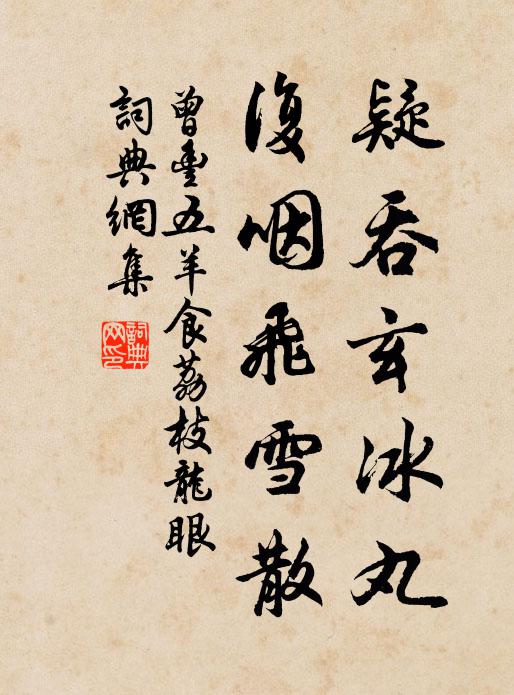 疑吞玄冰丸
復咽飛雪散
曾豊五羊食荔枝龍眼
詞典網集
詞典網印